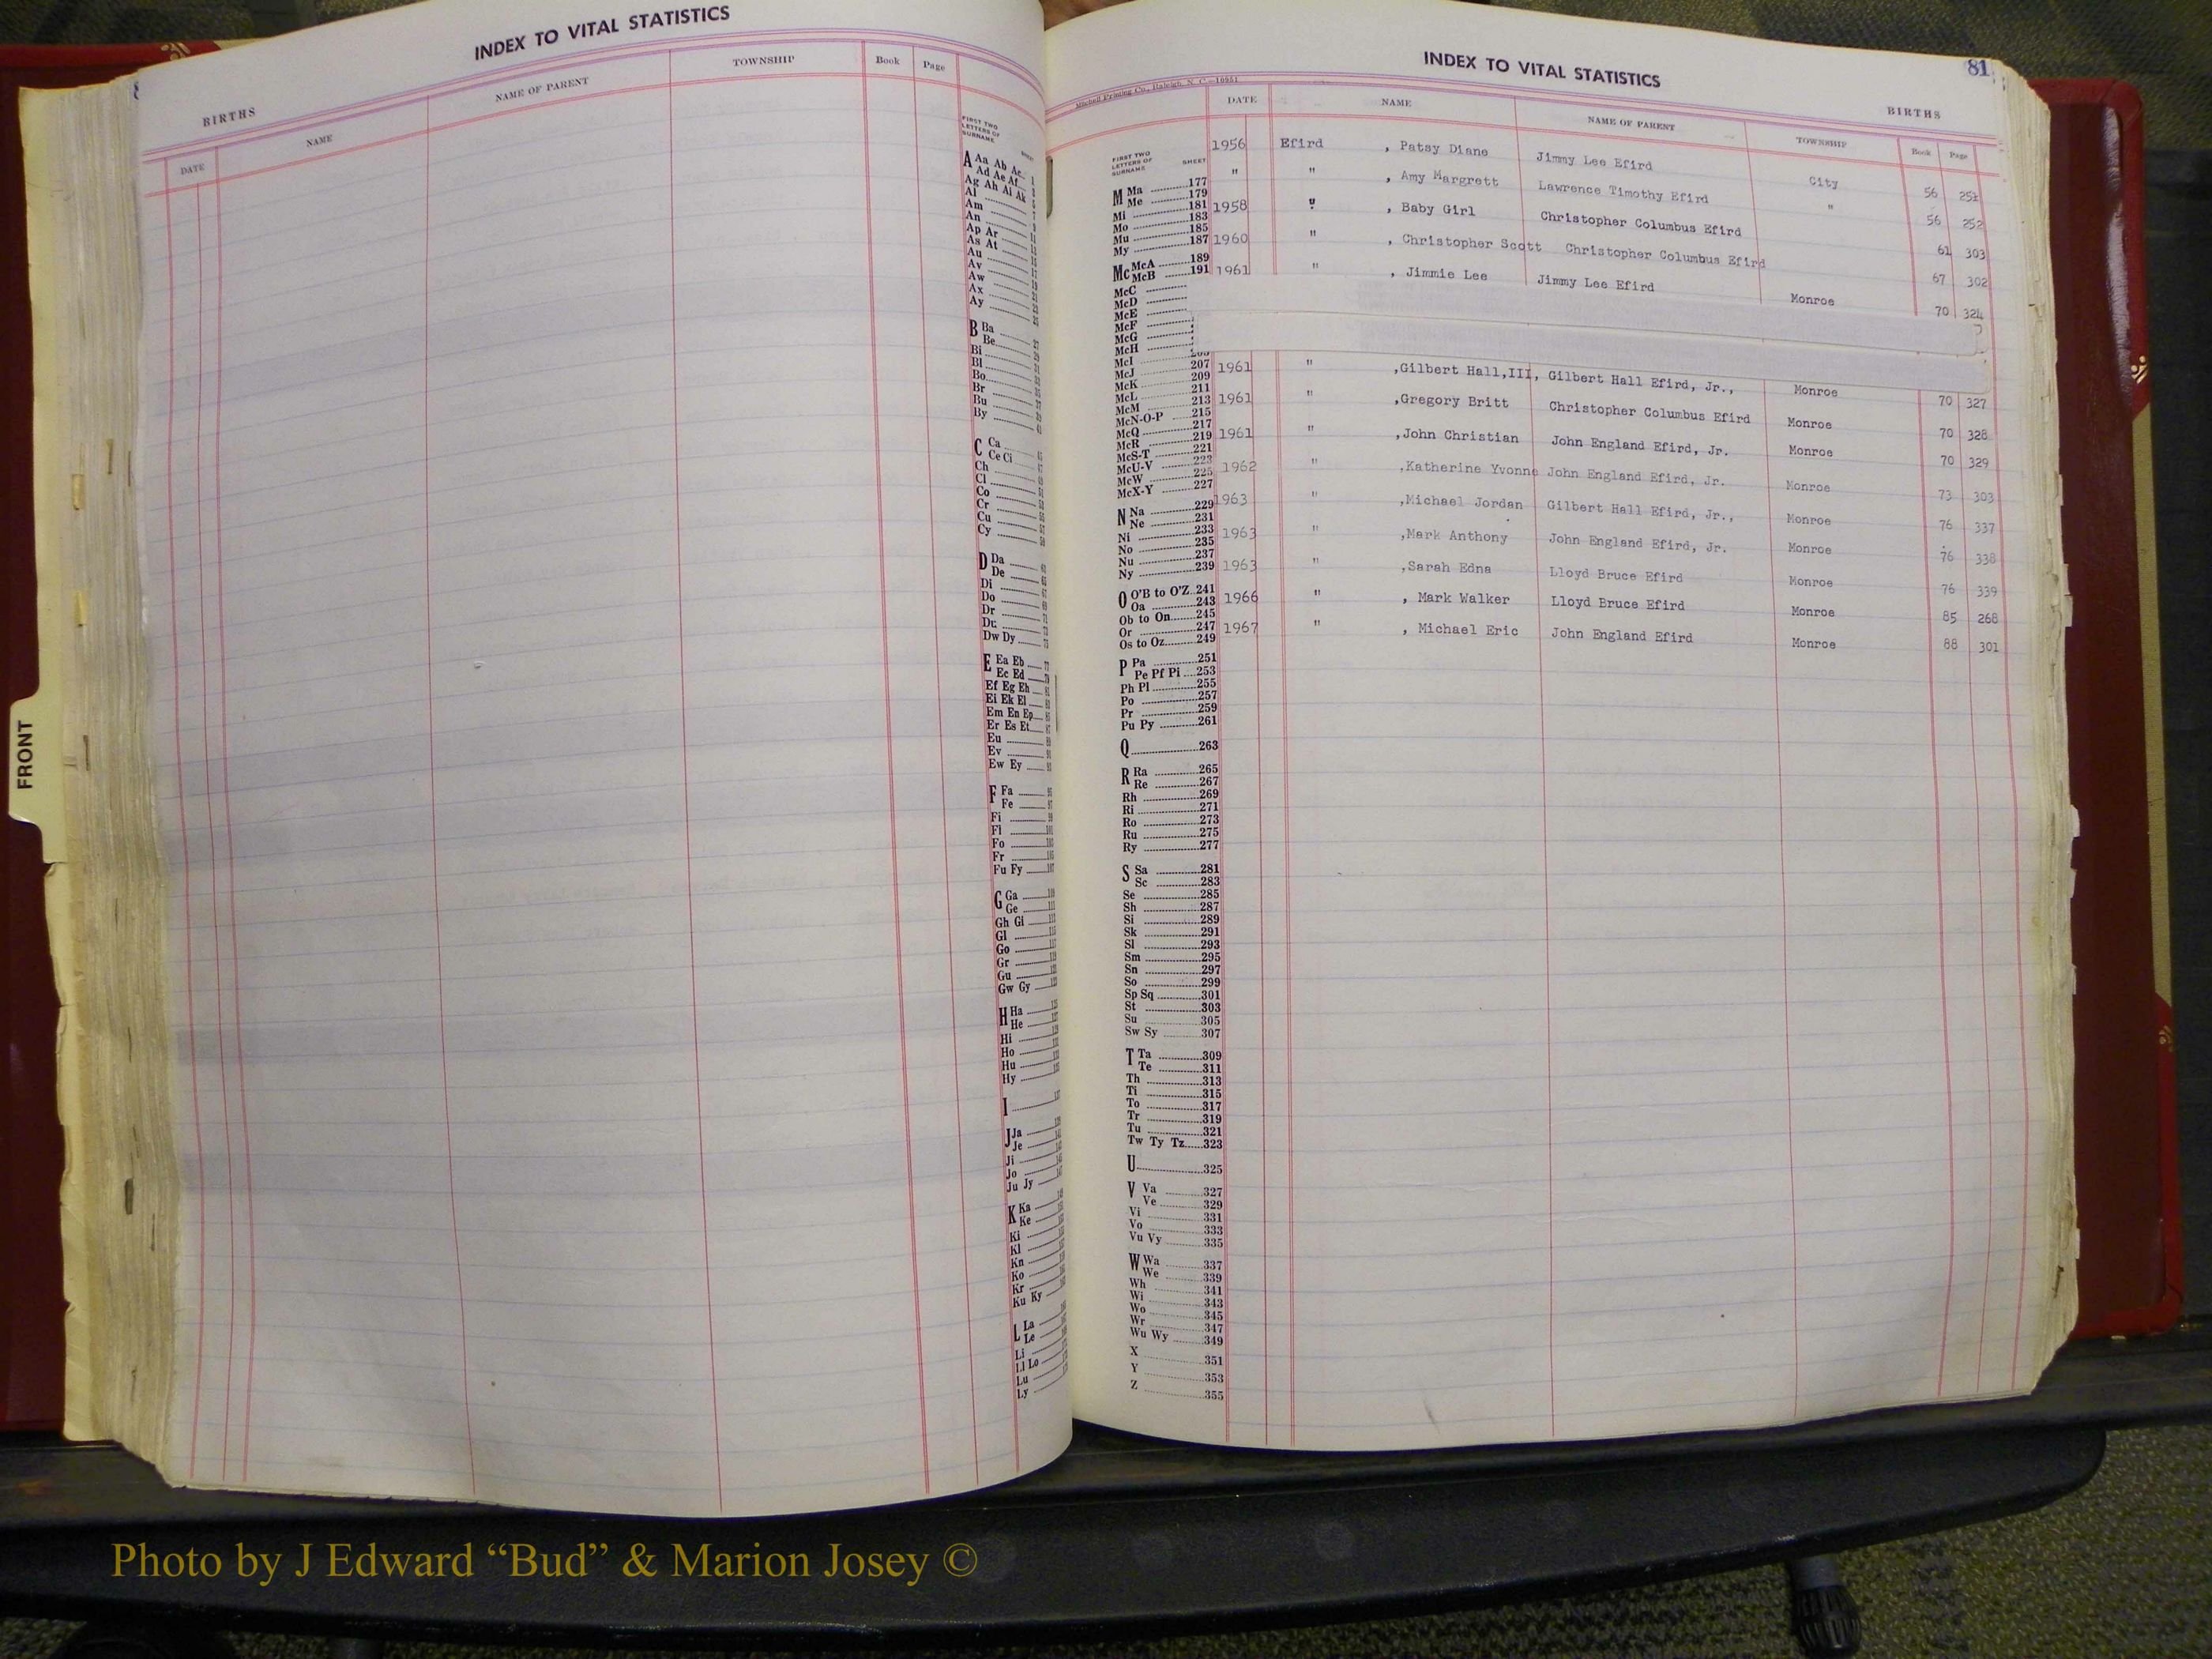 INDEX TO VITAL STATISTICS
BIRTHS
DATE NAME NAME OF PARENT TOWNSHIP Book Page
FIRST TWO
LETTERS OF
SURNAME
A Aa Ab Ac
Ad Ae Af
Ag Ah Ai Ak
Al
Am
An
Ap Ar
As At
Au
Av
Aw
Ax
Ay
B Ba
Be
Bi
Bl
Bo
Br
Bu
By
C Ca
Ce Ci
Ch
Cl
Co
Cr
Cu
Cy
D Da
De
Di
Do
Dr
Du
Dw Dy
E Ea Eb
Ec Ed
Ef Eg Eh
Ei Ek El
Em En Ep
Er Es Et
Eu
Ev
Ew Ey
F Fa
Fe
Fi
Fl
Fo
Fr
Fu Fy
G Ga
Ge
Gh Gi
Gl
Go
Gr
Gu
Gw Gy
H Ha
He
Hi
Ho
Hu
Hy
I
J Ja
Je
Ji
Jo
Ju Jy
K Ka
Ke
Ki
Kl
Kn
Ko
Kr
Ku Ky
L La
Le
Li
Ll Lo
Lu
Ly
FRONT
INDEX TO VITAL STATISTICS
81
Mitchell Printing Co., Raleigh, N. C.—10951
BIRTHS
DATE NAME NAME OF PARENT TOWNSHIP Book Page
1956 Efird , Patsy Diane Jimmy Lee Efird City 56 251
" " , Amy Margrett Lawrence Timothy Efird " 56 252
1958 " , Baby Girl Christopher Columbus Efird 61 303
1960 " , Christopher Scott Christopher Columbus Efird 67 302
1961 " , Jimmie Lee Jimmy Lee Efird Monroe 70 324
1961 " ,Gilbert Hall,III, Gilbert Hall Efird, Jr., Monroe 70 327
1961 " ,Gregory Britt Christopher Columbus Efird Monroe 70 328
1961 " ,John Christian John England Efird, Jr. Monroe 70 329
1962 " ,Katherine Yvonne John England Efird, Jr. Monroe 73 303
1963 " ,Michael Jordan Gilbert Hall Efird, Jr., Monroe 76 337
1963 " ,Mark Anthony John England Efird, Jr. Monroe 76 338
1963 " ,Sarah Edna Lloyd Bruce Efird Monroe 76 339
1966 " , Mark Walker Lloyd Bruce Efird Monroe 85 268
1967 " , Michael Eric John England Efird Monroe 88 301
FIRST TWO
LETTERS OF SHEET
SURNAME
M Ma 177
Me 179
Mi 181
Mo 183
Mu 185
My 187
Mc McA 189
McB 191
McC
McD
McE
McF
McG
McH
McI
McJ 207
McK 209
McL 211
McM 213
McN-O-P 215
McQ 217
McR 219
McS-T 221
McU-V 223
McW 225
McX-Y 227
N Na 229
Ne 231
Ni 233
No 235
Nu 237
Ny 239
O O'B to O'Z 241
Oa 243
Ob to On 245
Or 247
Os to Oz 249
P Pa 251
Pe Pf Pi 253
Ph Pl 255
Po 257
Pr 259
Pu Py 261
Q 263
R Ra 265
Re 267
Rh 269
Ri 271
Ro 273
Ru 275
Ry 277
S Sa 281
Sc 283
Se 285
Sh 287
Si 289
Sk 291
Sl 293
Sm 295
Sn 297
So 299
Sp Sq 301
St 303
Su 305
Sw Sy 307
T Ta 309
Te 311
Th 313
Ti 315
To 317
Tr 319
Tu 321
Tw Ty Tz 323
U 325
V Va 327
Ve 329
Vi 331
Vo 333
Vu Vy 335
W Wa 337
We 339
Wh 341
Wi 343
Wo 345
Wr 347
Wu Wy 349
X 351
Y 353
Z 355
Photo by J Edward “Bud” & Marion Josey ©